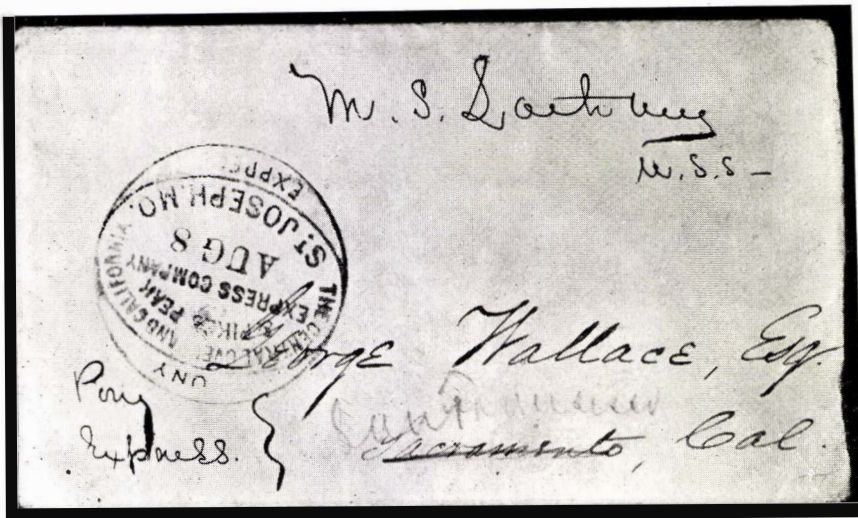 M. S. Latham
U.S.S
PONY
EXPRESS
THE CENTRAL OVERLAND CALIFORNIA
AND PIKES PEAK
EXPRESS COMPANY
AUG 8
ST JOSEPH, MO.
George Wallace, Esq.
San Francisco
Sacramento, Cal.
Pony
Express.